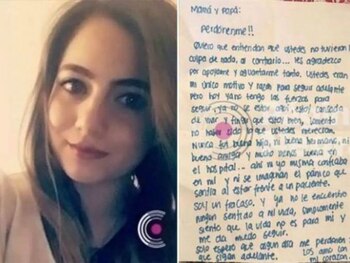 Mamá y Papá:
Perdónenme!!
Quiero que entiendan que ustedes no tuvieron la
culpa de nada, al contrario... les agradezco
por apoyarme y aguantarme tanto. Ustedes eran
mi único motivo y razón para seguir adelante
pero hoy ya no tengo las fuerzas para
seguir, ya no se estar aquí, estoy cansada
de y fingir que estoy bien, lamento
no haber sido que ustedes merecían
Nunca fui buena hija, ni buena hermana, ni
buena amiga y mucho menos buena en
el hospital... ahí ni yo misma confiaba
en mí y ni se imaginan el pánico que
sentía al estar frente a un paciente.
Soy un fracaso, y ya no le encuentro
ningún sentido a mi vida, simplemente
siento que la vida no es para mí y
me da miedo seguir.
Solo espero que algún día me perdonen
que sigan adelante. Los amo con
mi corazón